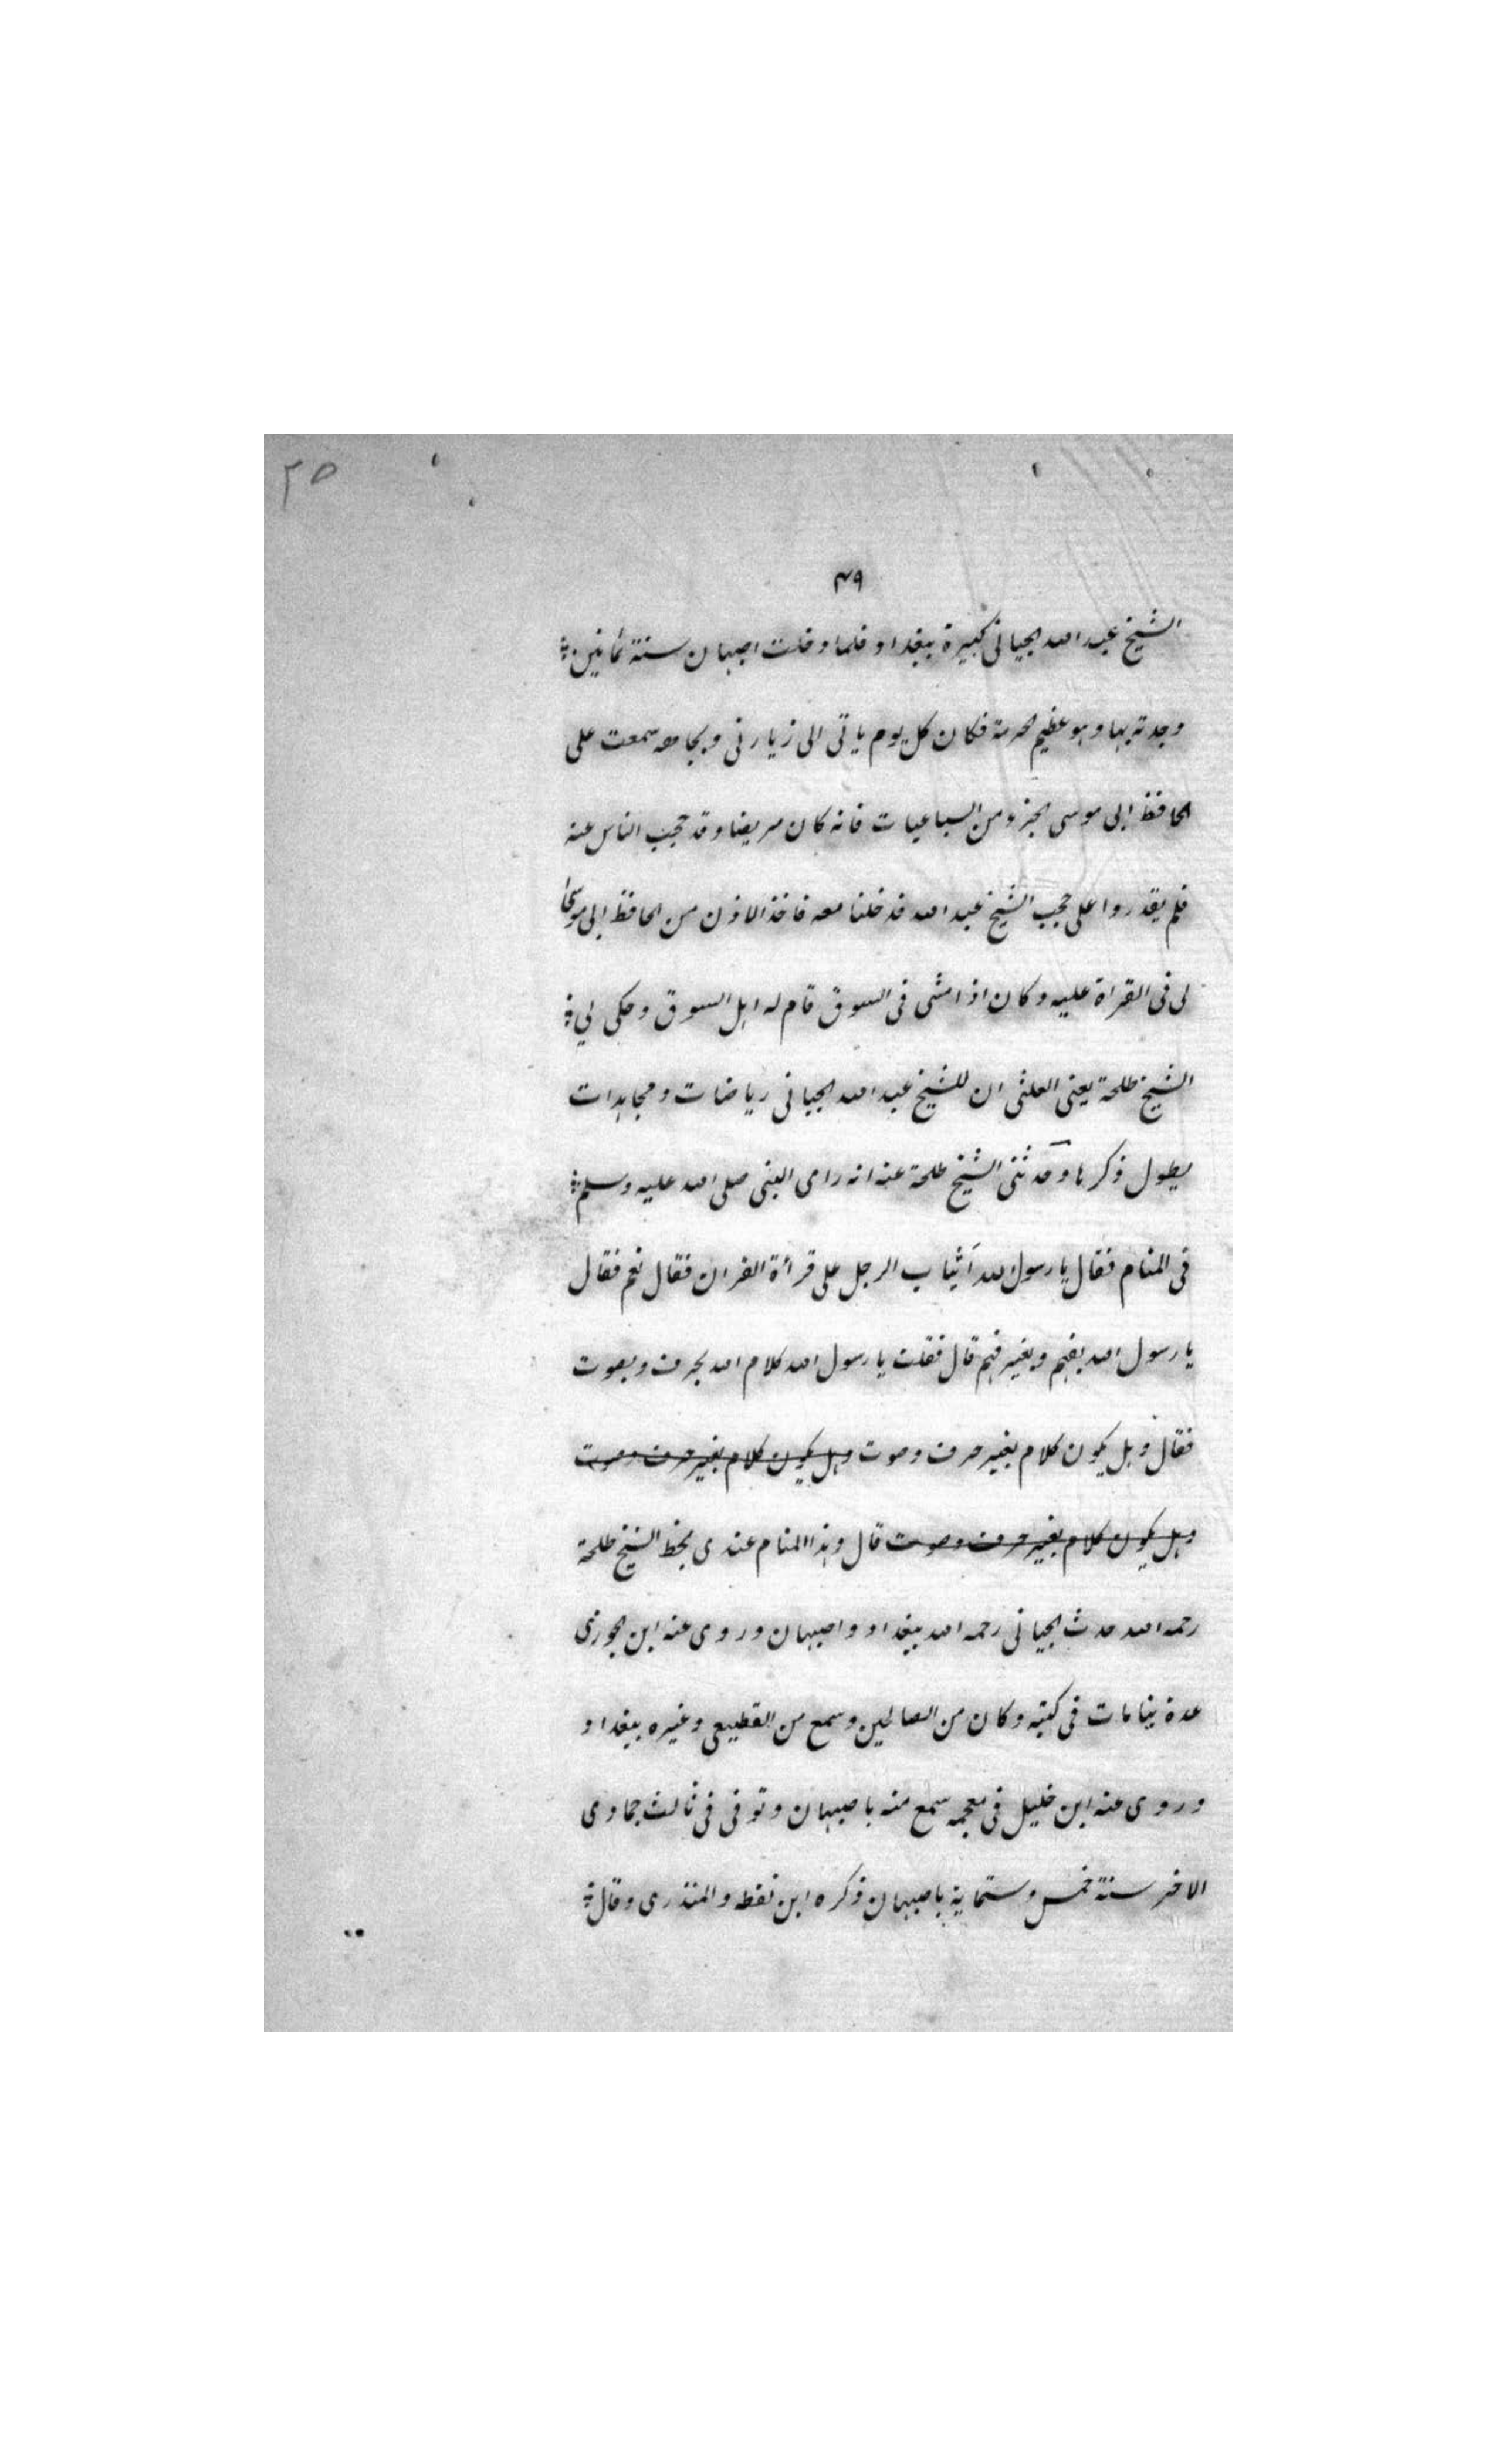 ٢٥
٤٩
الشيخ عبد الله الجياني كبيرة ببغداد فلما دخلت اصبهان سنة ثمانين
وجدته بها وهو عظيم الحرمة فكان كل يوم ياتى الى زيارتى وبجاهه سمعت على
الحافظ ابى موسى الجزء من السباعيات فانه كان مريضا وقد حجب الناس عنه
فلم يقدروا على حجب الشيخ عبد الله فدخلنا معه فاخذ الاذن من الحافظ ابى موسى
لى فى القراة عليه وكان اذا مشى فى السوق قام له اهل السوق وحكى لي
الشيخ طلحة يعنى العلثى ان للشيخ عبد الله الجيانى رياضات ومجاهدات
يطول ذكرها وحدثنى الشيخ طلحة عنه انه راى النبى صلى الله عليه وسلم
فى المنام فقال يا رسول الله أيثاب الرجل على قرأة القران فقال نعم فقال
يا رسول الله بفهم وبغير فهم قال فقلت يا رسول الله كلام الله بحرف وبصوت
فقال وهل يكون كلام بغير حرف وصوت وهل يكون كلام بغير حرف وصوت
وهل يكون كلام بغير حرف وصوت قال وهذا المنام عندى بخط الشيخ طلحة
رحمه الله حدث الجيانى رحمه الله ببغداد واصبهان وروى عنه ابن الجوزى
عدة منامات فى كتبه وكان من الصالحين وسمع من القطيعى وغيره ببغداد
وروى عنه ابن خليل فى معجمه سمع منه باصبهان وتوفى فى ثالث جمادى
الاخر سنة خمس وستماية باصبهان ذكره ابن نقطه والمنذرى وقال